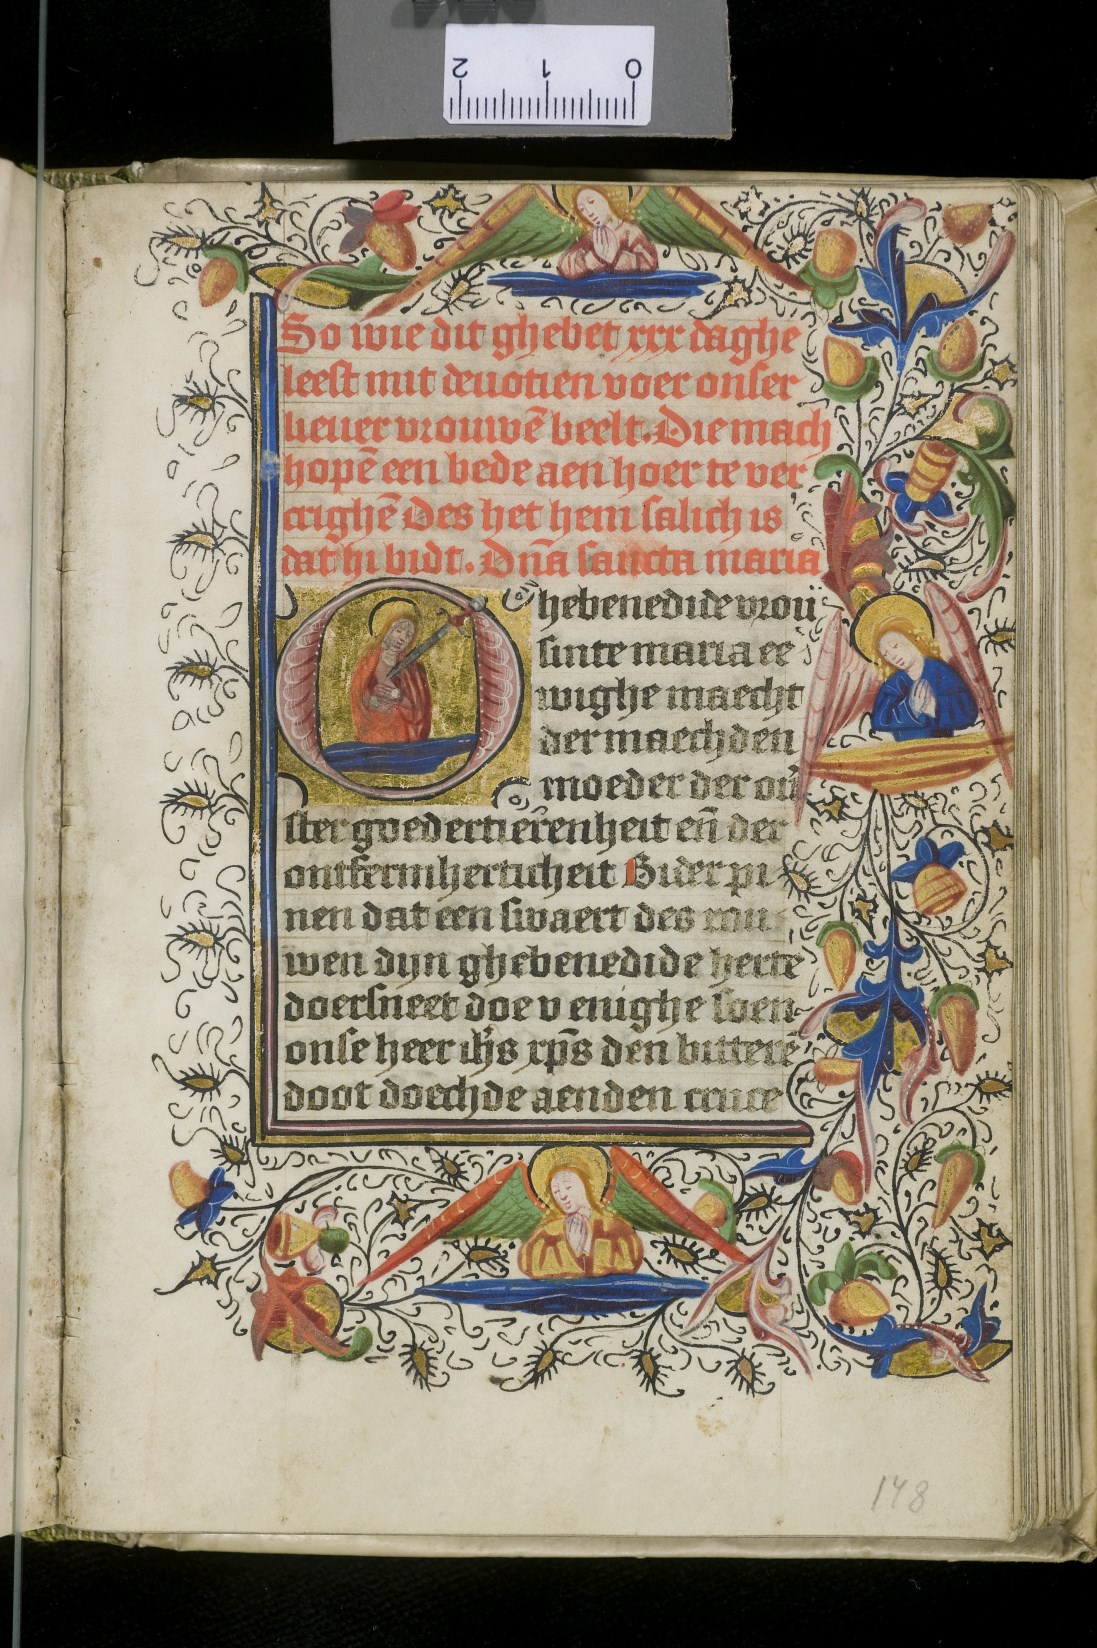 2 1 0
So wie dit ghebet xxx daghe
leest mit deuotien voer onser
lieuer vrouwē beelt. Die mach
hopē een bede aen hoer te ver
crighē Des het hem salich is
dat hi bidt. Dn̄a sancta maria
O hebenedide vrou
sinte maria ee
wighe maecht
der maechden
moeder der ou̅
ster goedertierenheit en̄ der
ontfermherticheit Bider pi
nen dat een swaert des rou
wen dijn ghebenedide herte
doersneet doe v enighe soen
onse heer ih̄s xp̄s den bitterē
doot doechde aenden cruce
148